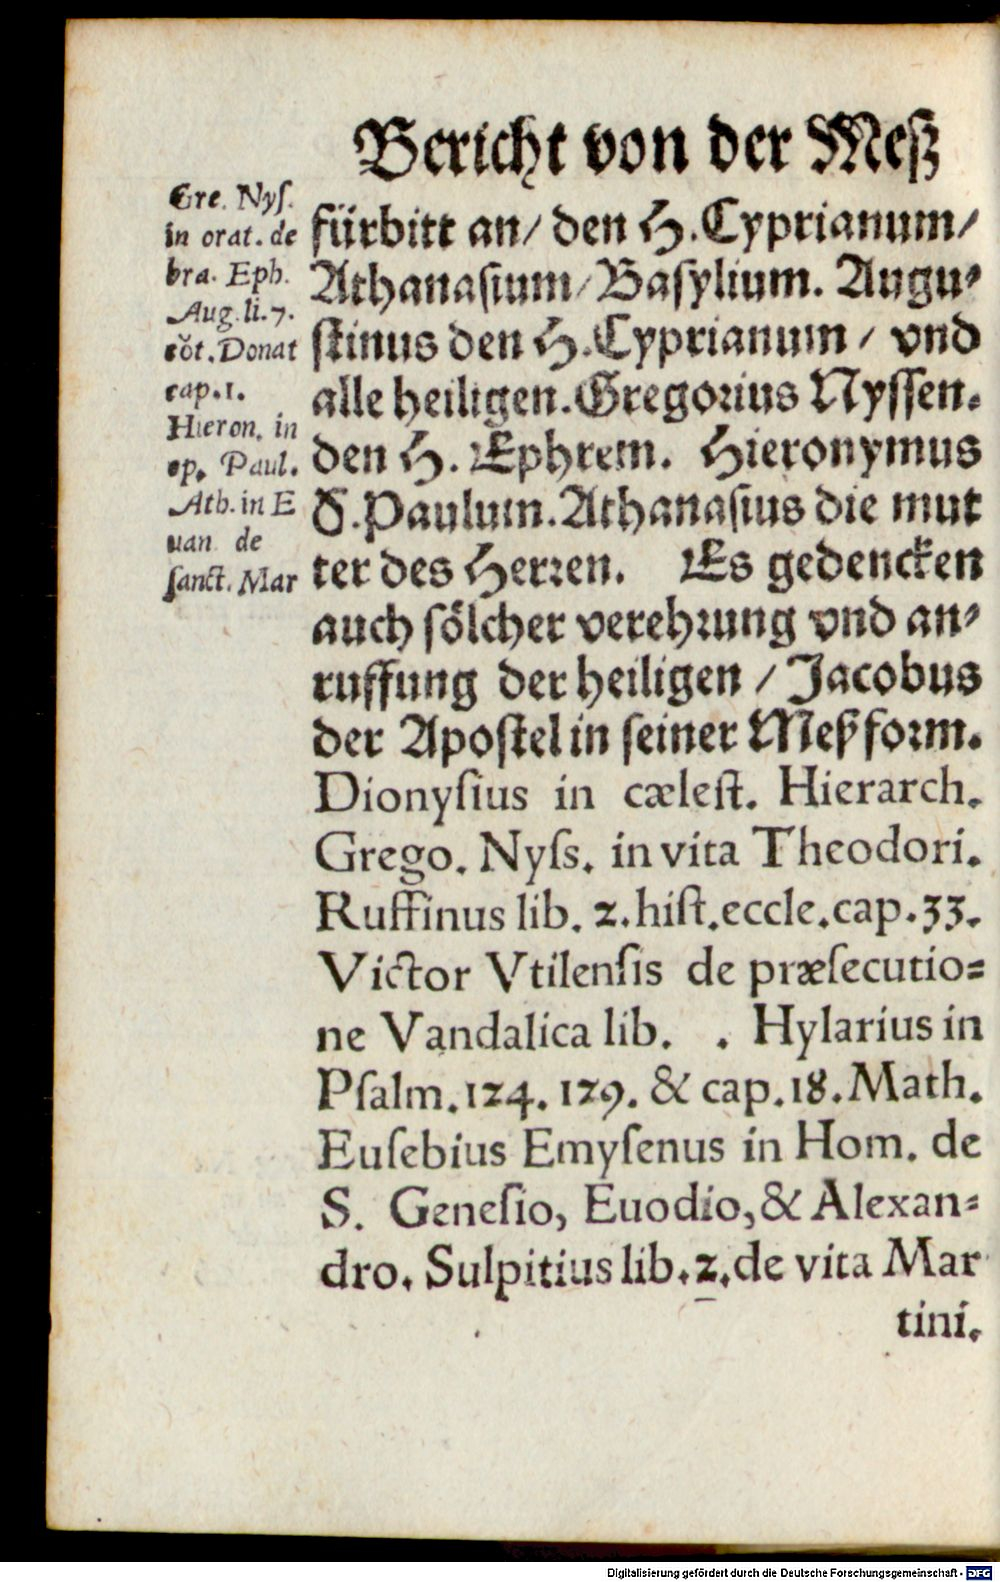 Bericht von der Meß
Gre. Nyſ.
in orat. de
bra. Eph.
Aug. li. 7.
cõt. Donat
cap. 1.
Hieron. in
ep. Paul.
Ath. in E
uan de
ſanct. Mar
fürbitt an/ den H. Cyprianum/
Athanaſium/ Baſylium. Augu⸗
ſtinus den H. Cyprianum / vnd
alle heiligen. Gregorius Nyſſen.
den H. Ephrem. Hieronymus
S. Paulum. Athanaſius die mut
ter des Herren. Es gedencken
auch ſölcher verehrung vnd an⸗
ruffung der heiligen / Jacobus
der Apoſtel in ſeiner Meß form.
Dionyſius in cæleſt. Hierarch.
Grego. Nyſs. in vita Theodori.
Ruffinus lib. 2. hiſt. eccle. cap. 33.
Victor Vtilenſis de præſecutio⸗
ne Vandalica lib. . Hylarius in
Pſalm. 124. 129. & cap. 18. Math.
Euſebius Emyſenus in Hom. de
S. Geneſio, Euodio, & Alexan⸗
dro. Sulpitius lib. 2. de vita Mar
tini.
Digitalisierung gefördert durch die Deutsche Forschungsgemeinschaft - DFG